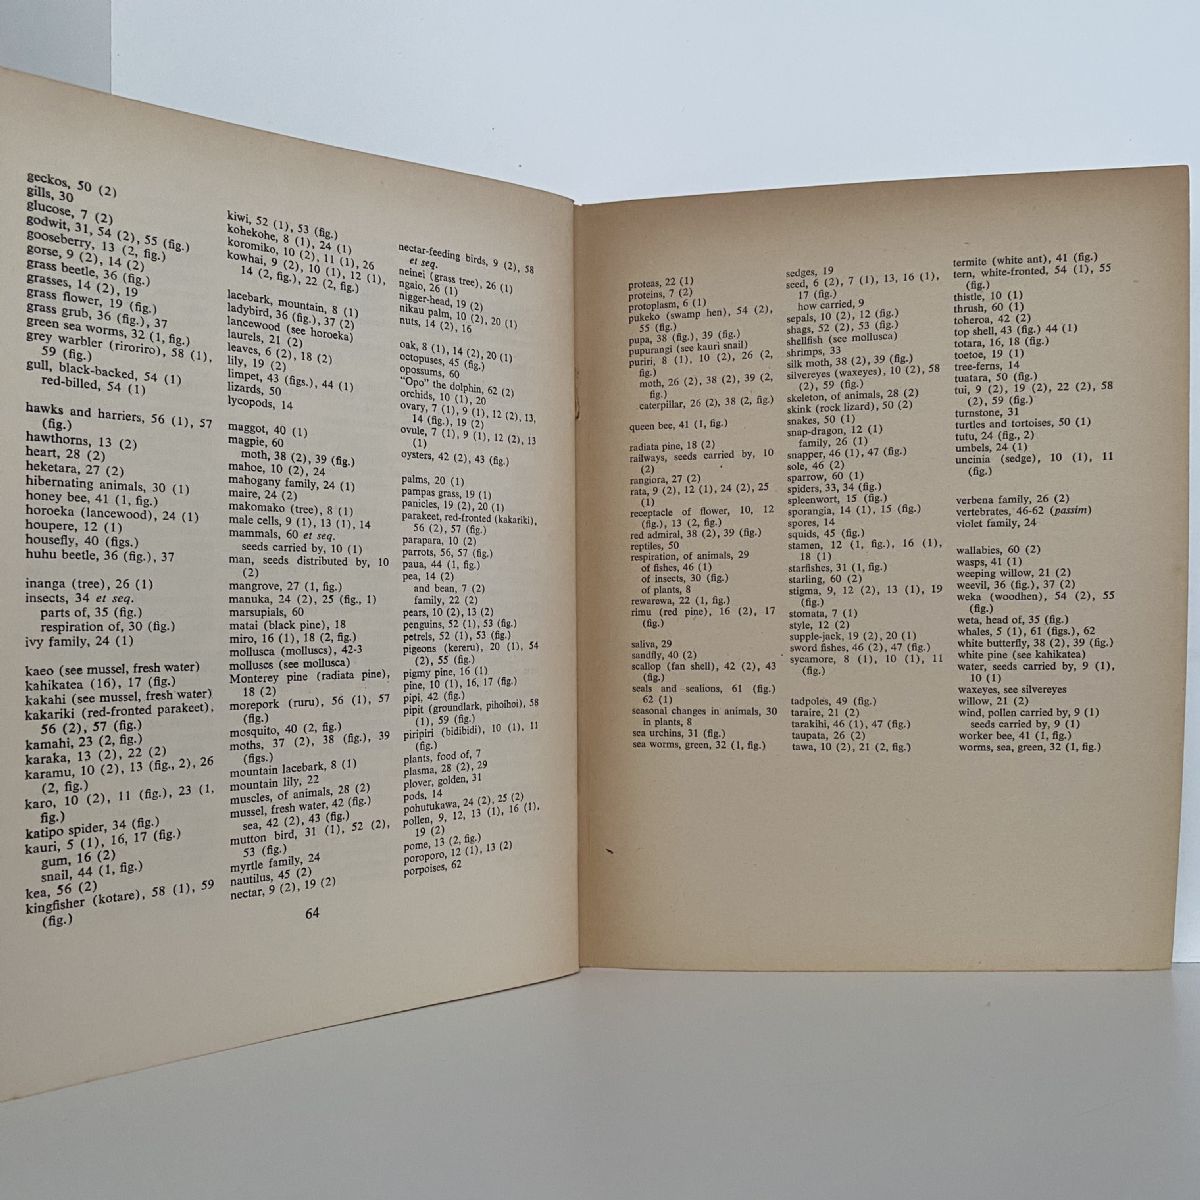 geckos, 50 (2)
gills, 30
glucose, 7 (2)
godwit, 31, 54 (2), 55 (fig.)
gooseberry, 13 (2, fig.)
gorse, 9 (2), 14 (2)
grass beetle, 36 (fig.)
grasses, 14 (2), 19
grass flower, 19 (fig.)
grass grub, 36 (fig.), 37
green sea worms, 32 (1, fig.)
grey warbler (riroriro), 58 (1),
59 (fig.)
gull, black-backed, 54 (1)
red-billed, 54 (1)
hawks and harriers, 56 (1), 57
(fig.)
hawthorns, 13 (2)
heart, 28 (2)
heketara, 27 (2)
hibernating animals, 30 (1)
honey bee, 41 (1, fig.)
horoeka (lancewood), 24 (1)
houpere, 12 (1)
housefly, 40 (figs.)
huhu beetle, 36 (fig.), 37
inanga (tree), 26 (1)
insects, 34 et seq.
parts of, 35 (fig.)
respiration of, 30 (fig.)
ivy family, 24 (1)
kaeo (see mussel, fresh water)
kahikatea (16), 17 (fig.)
kakahi (see mussel, fresh water)
kakariki (red-fronted parakeet),
56 (2), 57 (fig.)
kamahi, 23 (2, fig.)
karaka, 13 (2), 22 (2)
karamu, 10 (2), 13 (fig., 2), 26
(2, fig.)
karo, 10 (2), 11 (fig.), 23 (1,
fig.)
katipo spider, 34 (fig.)
kauri, 5 (1), 16, 17 (fig.)
gum, 16 (2)
snail, 44 (1, fig.)
kea, 56 (2)
kingfisher (kotare), 58 (1), 59
(fig.)
kiwi, 52 (1), 53 (fig.)
kohekohe, 8 (1), 24 (1)
koromiko, 10 (2), 11 (1), 26
kowhai, 9 (2), 10 (1), 12 (1),
14 (2, fig.), 22 (2, fig.)
lacebark, mountain, 8 (1)
ladybird, 36 (fig.), 37 (2)
lancewood (see horoeka)
laurels, 21 (2)
leaves, 6 (2), 18 (2)
lily, 19 (2)
limpet, 43 (figs.), 44 (1)
lizards, 50
lycopods, 14
maggot, 40 (1)
magpie, 60
moth, 38 (2), 39 (fig.)
mahoe, 10 (2), 24
mahogany family, 24 (1)
maire, 24 (2)
makomako (tree), 8 (1)
male cells, 9 (1), 13 (1), 14
mammals, 60 et seq.
seeds carried by, 10 (1)
man, seeds distributed by, 10
(2)
mangrove, 27 (1, fig.)
manuka, 24 (2), 25 (fig., 1)
marsupials, 60
matai (black pine), 18
miro, 16 (1), 18 (2, fig.)
mollusca (molluscs), 42-3
molluscs (see mollusca)
Monterey pine (radiata pine),
18 (2)
morepork (ruru), 56 (1), 57
(fig.)
mosquito, 40 (2, fig.)
moths, 37 (2), 38 (fig.), 39
(figs.)
mountain lacebark, 8 (1)
mountain lily, 22
muscles, of animals, 28 (2)
mussel, fresh water, 42 (fig.)
sea, 42 (2), 43 (fig.)
mutton bird, 31 (1), 52 (2),
53 (fig.)
myrtle family, 24
nautilus, 45 (2)
nectar, 9 (2), 19 (2)
nectar-feeding birds, 9 (2), 58
et seq.
neinei (grass tree), 26 (1)
ngaio, 26 (1)
nigger-head, 19 (2)
nikau palm, 10 (2), 20 (1)
nuts, 14 (2), 16
oak, 8 (1), 14 (2), 20 (1)
octopuses, 45 (fig.)
opossums, 60
"Opo" the dolphin, 62 (2)
orchids, 10 (1), 20
ovary, 7 (1), 9 (1), 12 (2), 13,
14 (fig.), 19 (2)
ovule, 7 (1), 9 (1), 12 (2), 13
(1)
oysters, 42 (2), 43 (fig.)
palms, 20 (1)
pampas grass, 19 (1)
panicles, 19 (2), 20 (1)
parakeet, red-fronted (kakariki),
56 (2), 57 (fig.)
parapara, 10 (2)
parrots, 56, 57 (fig.)
paua, 44 (1, fig.)
pea, 14 (2)
and bean, 7 (2)
family, 22 (2)
pears, 10 (2), 13 (2)
penguins, 52 (1), 53 (fig.)
petrels, 52 (1), 53 (fig.)
pigeons (kereru), 20 (1), 54
(2), 55 (fig.)
pigmy pine, 16 (1)
pine, 10 (1), 16, 17 (fig.)
pipi, 42 (fig.)
pipit (groundlark, pihoihoi), 58
(1), 59 (fig.)
piripiri (bidibidi), 10 (1), 11
(fig.)
plants, food of, 7
plasma, 28 (2), 29
plover, golden, 31
pods, 14
pohutukawa, 24 (2), 25 (2)
pollen, 9, 12, 13 (1), 16 (1),
19 (2)
pome, 13 (2, fig.)
poroporo, 12 (1), 13 (2)
porpoises, 62
64
proteas, 22 (1)
proteins, 7 (2)
protoplasm, 6 (1)
pukeko (swamp hen), 54 (2),
55 (fig.)
pupa, 38 (fig.), 39 (fig.)
pupurangi (see kauri snail)
puriri, 8 (1), 10 (2), 26 (2,
fig.)
moth, 26 (2), 38 (2), 39 (2,
fig.)
caterpillar, 26 (2), 38 (2, fig.)
queen bee, 41 (1, fig.)
radiata pine, 18 (2)
railways, seeds carried by, 10
(2)
rangiora, 27 (2)
rata, 9 (2), 12 (1), 24 (2), 25
(1)
receptacle of flower, 10, 12
(fig.), 13 (2, fig.)
red admiral, 38 (2), 39 (fig.)
reptiles, 50
respiration, of animals, 29
of fishes, 46 (1)
of insects, 30 (fig.)
of plants, 8
rewarewa, 22 (1, fig.)
rimu (red pine), 16 (2), 17
(fig.)
saliva, 29
sandfly, 40 (2)
scallop (fan shell), 42 (2), 43
(fig.)
seals and sealions, 61 (fig.)
62 (1)
seasonal changes in animals, 30
in plants, 8
sea urchins, 31 (fig.)
sea worms, green, 32 (1, fig.)
sedges, 19
seed, 6 (2), 7 (1), 13, 16 (1),
17 (fig.)
how carried, 9
sepals, 10 (2), 12 (fig.)
shags, 52 (2), 53 (fig.)
shellfish (see mollusca)
shrimps, 33
silk moth, 38 (2), 39 (fig.)
silvereyes (waxeyes), 10 (2), 58
(2), 59 (fig.)
skeleton, of animals, 28 (2)
skink (rock lizard), 50 (2)
snakes, 50 (1)
snap-dragon, 12 (1)
family, 26 (1)
snapper, 46 (1), 47 (fig.)
sole, 46 (2)
sparrow, 60 (1)
spiders, 33, 34 (fig.)
spleenwort, 15 (fig.)
sporangia, 14 (1), 15 (fig.)
spores, 14
squids, 45 (fig.)
stamen, 12 (1, fig.), 16 (1),
18 (1)
starfishes, 31 (1, fig.)
starling, 60 (2)
stigma, 9, 12 (2), 13 (1), 19
(fig.)
stomata, 7 (1)
style, 12 (2)
supple-jack, 19 (2), 20 (1)
sword fishes, 46 (2), 47 (fig.)
sycamore, 8 (1), 10 (1), 11
(fig.)
tadpoles, 49 (fig.)
taraire, 21 (2)
tarakihi, 46 (1), 47 (fig.)
taupata, 26 (2)
tawa, 10 (2), 21 (2, fig.)
termite (white ant), 41 (fig.)
tern, white-fronted, 54 (1), 55
(fig.)
thistle, 10 (1)
thrush, 60 (1)
toheroa, 42 (2)
top shell, 43 (fig.) 44 (1)
totara, 16, 18 (fig.)
toetoe, 19 (1)
tree-ferns, 14
tuatara, 50 (fig.)
tui, 9 (2), 19 (2), 22 (2), 58
(2), 59 (fig.)
turnstone, 31
turtles and tortoises, 50 (1)
tutu, 24 (fig., 2)
umbels, 24 (1)
uncinia (sedge), 10 (1), 11
(fig.)
verbena family, 26 (2)
vertebrates, 46-62 (passim)
violet family, 24
wallabies, 60 (2)
wasps, 41 (1)
weeping willow, 21 (2)
weevil, 36 (fig.), 37 (2)
weka (woodhen), 54 (2), 55
(fig.)
weta, head of, 35 (fig.)
whales, 5 (1), 61 (figs.), 62
white butterfly, 38 (2), 39 (fig.)
white pine (see kahikatea)
water, seeds carried by, 9 (1),
10 (1)
waxeyes, see silvereyes
willow, 21 (2)
wind, pollen carried by, 9 (1)
seeds carried by, 9 (1)
worker bee, 41 (1, fig.)
worms, sea, green, 32 (1, fig.)